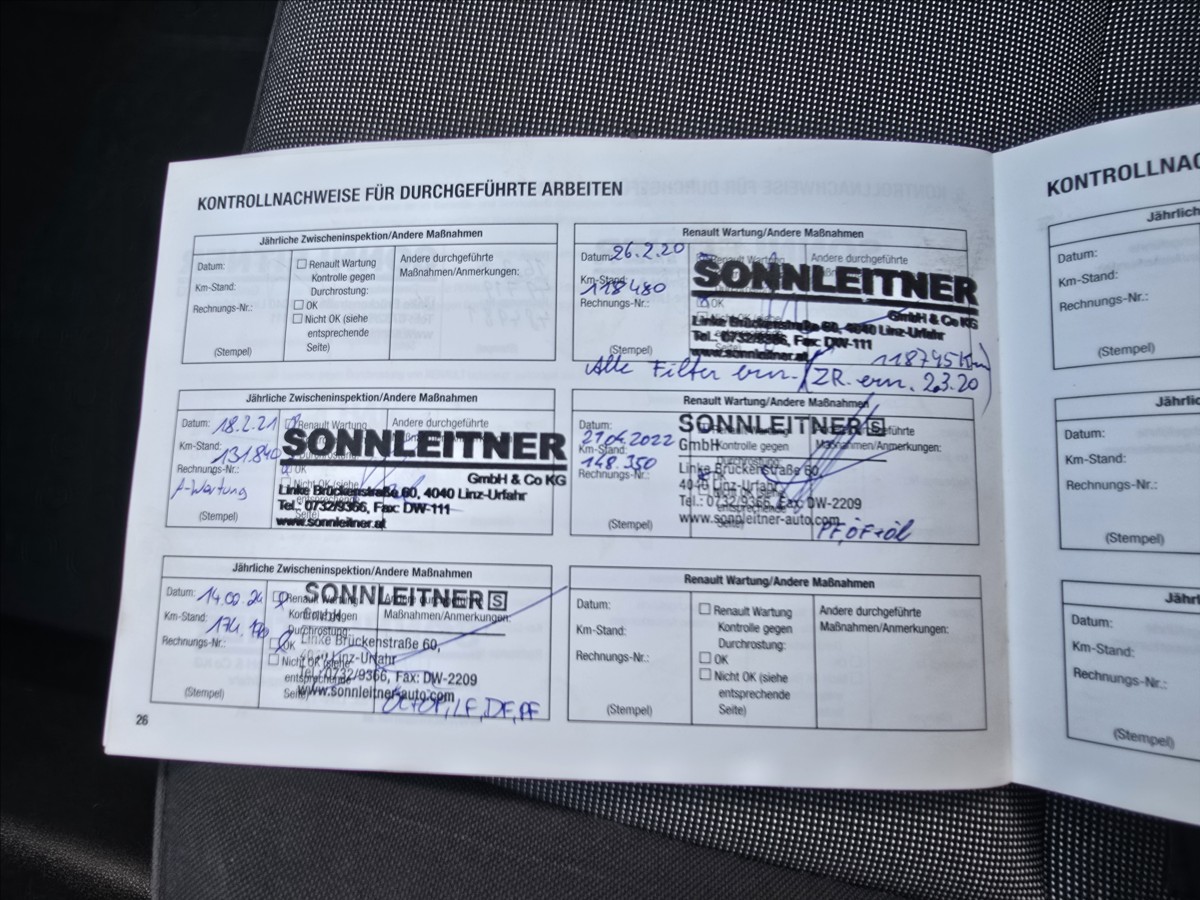 KONTROLLNACHWEISE FÜR DURCHGEFÜHRTE ARBEITEN
Jährliche Zwischeninspektion/Andere Maßnahmen
Datum:
Km-Stand:
Rechnungs-Nr.:
(Stempel)
Renault Wartung
Kontrolle gegen
Durchrostung:
OK
Nicht OK (siehe
entsprechende
Seite)
Andere durchgeführte
Maßnahmen/Anmerkungen:
Renault Wartung/Andere Maßnahmen
Datum: 26.2.20
Km-Stand: 118480
Rechnungs-Nr.:
(Stempel)
Andere durchgeführte
OK
Nicht OK (siehe
SONNLEITNER
GmbH & Co KG
Linke Brückenstraße 60, 4040 Linz-Urfahr
Tel.: 0732/9366, Fax: DW-111
www.sonnleitner.at
118745 Km
Alle Filter ern. ZR. ern. 2.3.20
Jährliche Zwischeninspektion/Andere Maßnahmen
Datum: 18.2.21
Km-Stand: 131.840
Rechnungs-Nr.:
A-Wartung
(Stempel)
Renault Wartung
Andere durchgeführte
SONNLEITNER
GmbH & Co KG
OK
Nicht OK (siehe
Linke Brückenstraße 60, 4040 Linz-Urfahr
Tel.: 0732/9366, Fax: DW-111
www.sonnleitner.at
Renault Wartung/Andere Maßnahmen
Datum:
21.04.2022
Km-Stand:
148.350
Rechnungs-Nr.:
(Stempel)
SONNLEITNER S
GmbH
Kontrolle gegen
Maßnahmen/Anmerkungen:
Linke Brückenstraße 60,
4040 Linz-Urfahr
Tel.: 0732/9366, Fax: DW-2209
www.sonnleitner-auto.com
PF, ÖF+Öl
Jährliche Zwischeninspektion/Andere Maßnahmen
Datum:
Km-Stand:
Rechnungs-Nr.:
(Stempel)
SONNLEITNER S
GmbH
Maßnahmen/Anmerkungen:
Durchrostung:
OK
Linke Brückenstraße 60,
Nicht OK (siehe
Linz-Urfahr
Tel.: 0732/9366, Fax: DW-2209
www.sonnleitner-auto.com
Renault Wartung/Andere Maßnahmen
Datum:
Km-Stand:
Rechnungs-Nr.:
(Stempel)
Renault Wartung
Kontrolle gegen
Durchrostung:
OK
Nicht OK (siehe
entsprechende
Seite)
Andere durchgeführte
Maßnahmen/Anmerkungen:
26
KONTROLLNAC
Jährlich
Datum:
Km-Stand:
Rechnungs-Nr.:
(Stempel)
Jährlic
Datum:
Km-Stand:
Rechnungs-Nr.:
(Stempel)
Jährl
Datum:
Km-Stand:
Rechnungs-Nr.:
(Stempel)